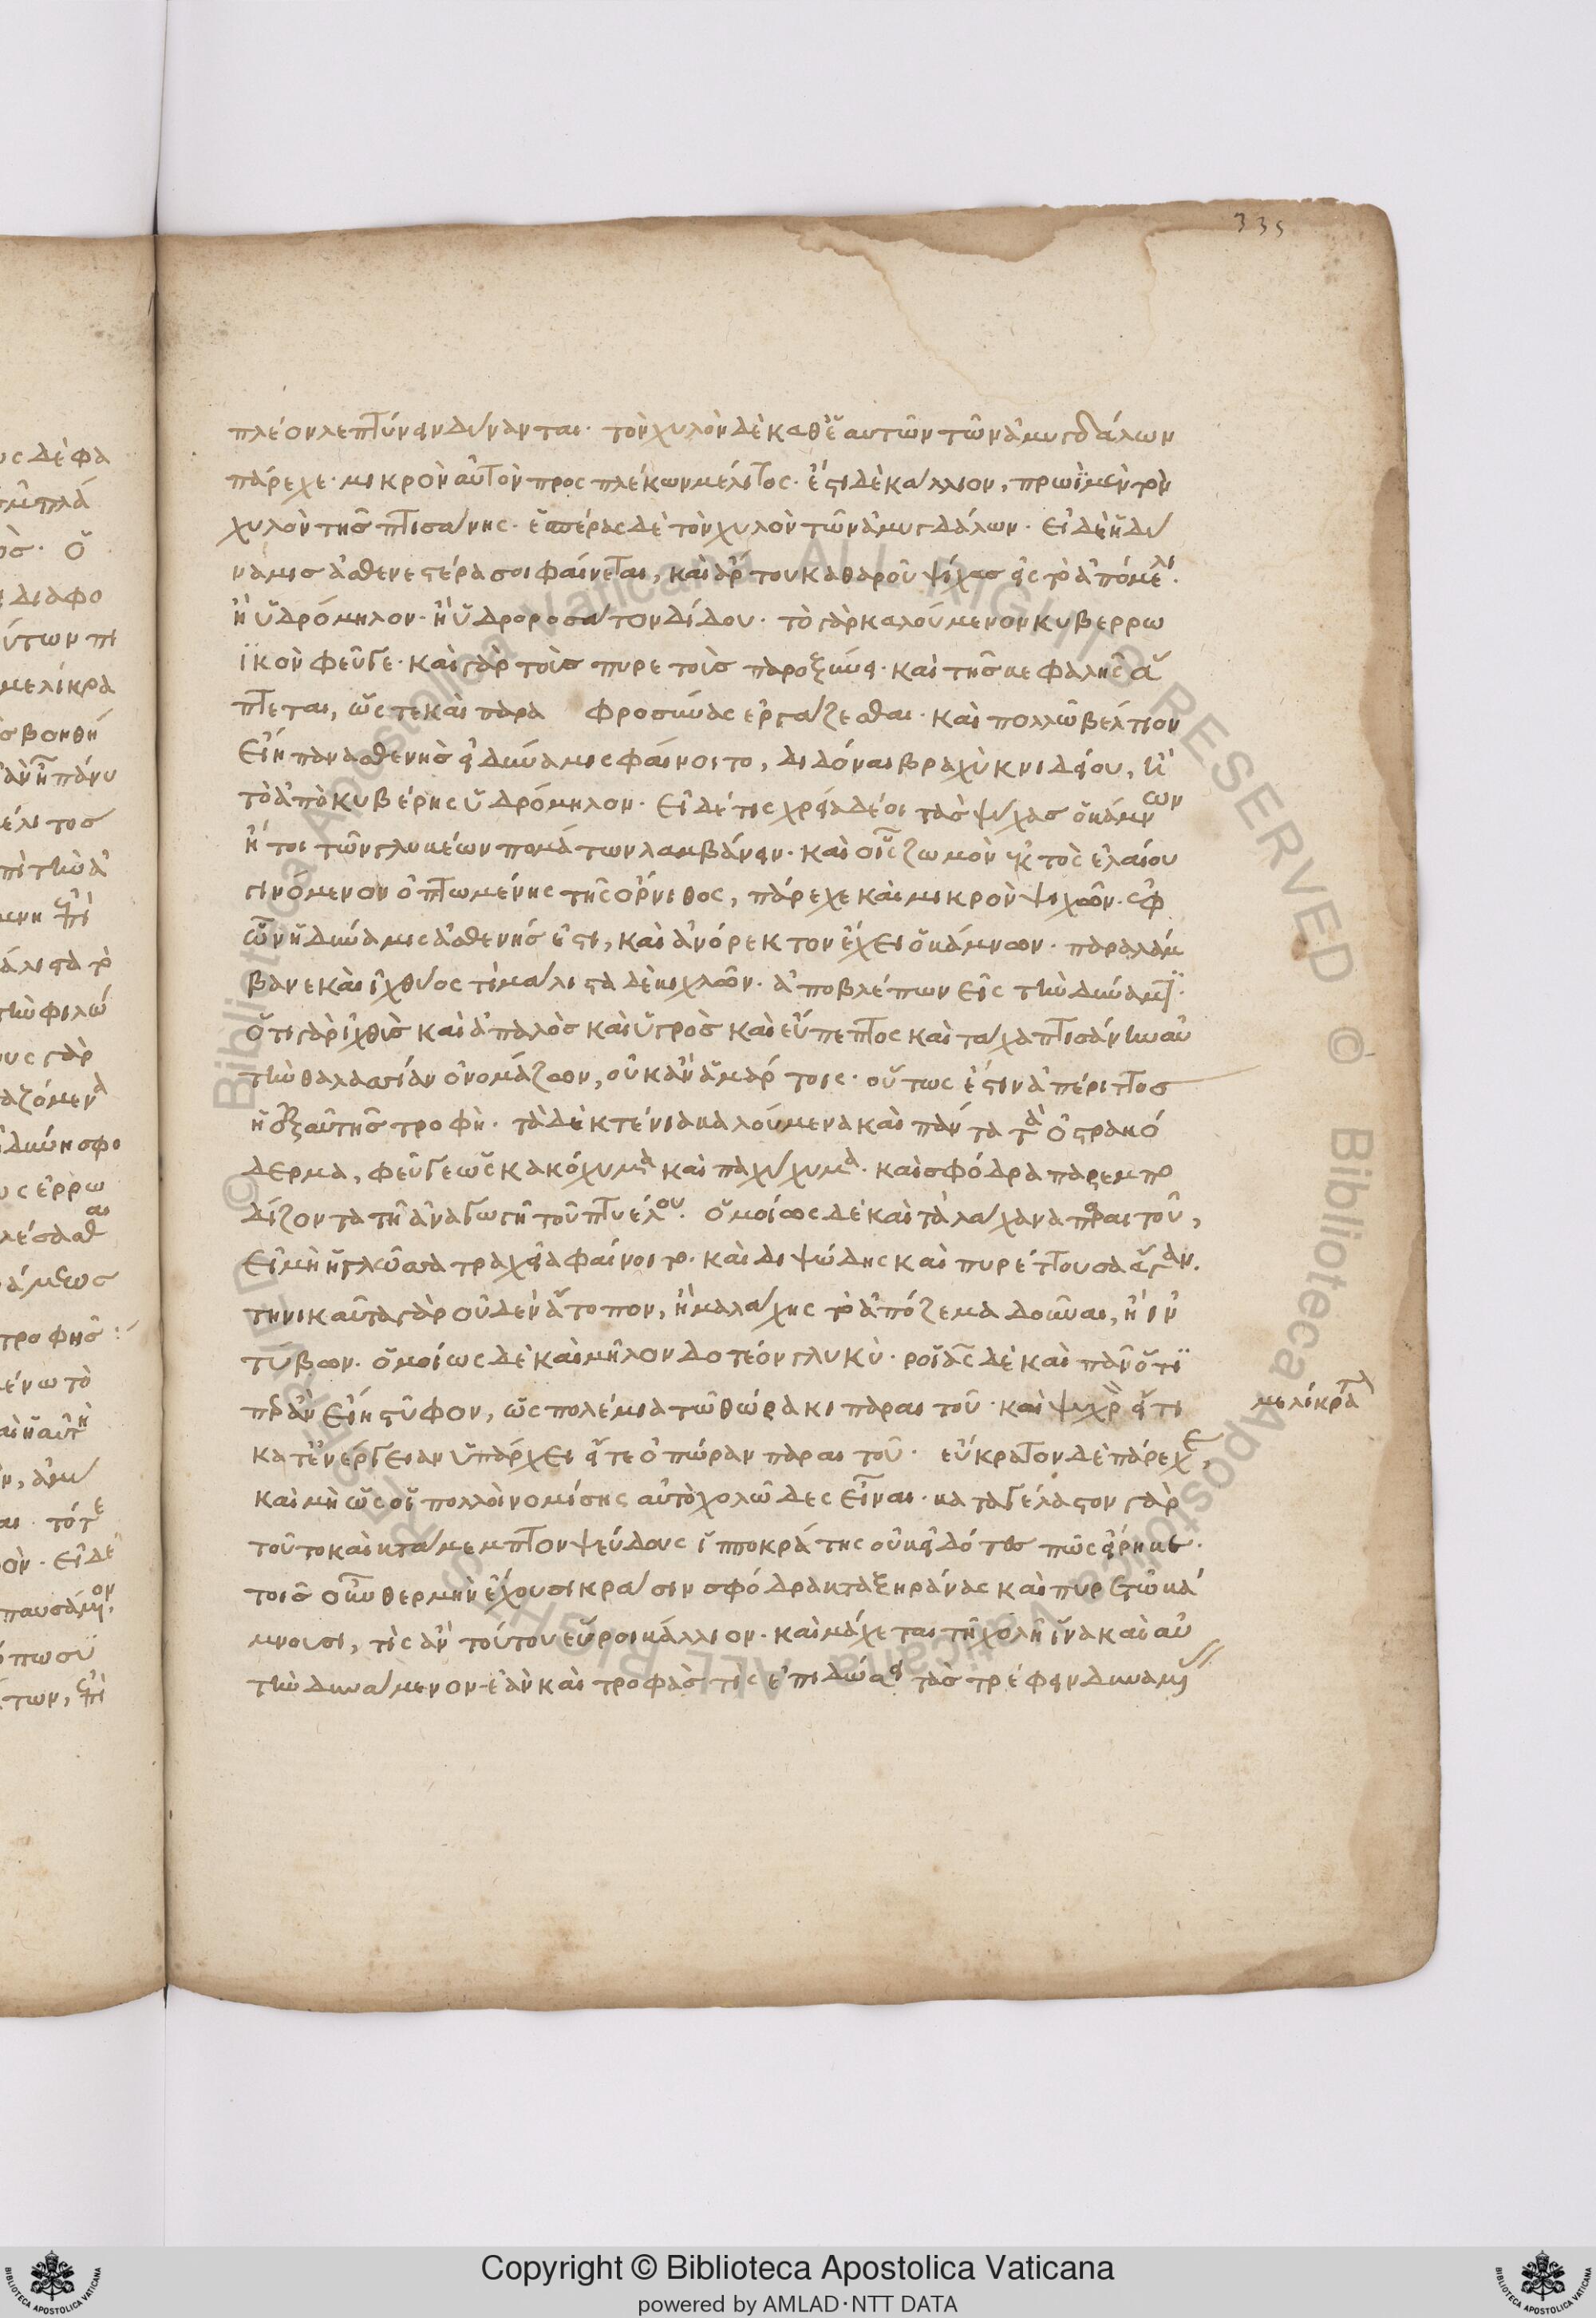 335
πλέον λεπτύνειν δύνανται· τὸν χυλὸν δὲ καθ' ἑαυτῶν τῶν ἀμυγδάλων
πάρεχε· μικρὸν αὐτὸν προσπλέκων μέλιτος· ἔστι δὲ κάλλιον, πρωῒ μὲν τὸν
χυλὸν τῆς πτισάνης· ἑσπέρας δὲ τὸν χυλὸν τῶν ἀμυγδάλων· εἰ δὲ ἡ δύ
ναμις ἀσθενεστέρα σοι φαίνεται, καὶ ἄρτου καθαροῦ ψίχας εἰς τὸ ἀπόμελι·
ἢ ὑδρόμηλον· ἢ ὑδροροσάτον δίδου· τὸ γὰρ καλούμενον κυβερρω
ϊκὸν φεῦγε· καὶ γὰρ τοῖς πυρετοῖς παροξύνει· καὶ τῆς κεφαλῆς ἅ
πτεται, ὥστε καὶ παρα φροσύνας ἐργάζεσθαι· καὶ πολλῶ βέλτιον
εἴη πάνυ ἀσθενὴς ἡ δύναμις φαίνοιτο, διδόναι βραχὺ κνιδείου, ἢ
τὸ ἀπὸ κυβέρης ὑδρόμηλον· εἰ δέ τις χρεία δέοι τὰς ψύχας ὁ κάμνων
ἤτοι τῶν γλυκέων πομάτων λαμβάνειν· καὶ οὕτως ζωμὸν ἐκτὸς ἐλαίου
γινόμενον ὀπτωμένης τῆς ὄρνιθος, πάρεχε καὶ μικρὸν ψιχῶν· ἐφ'
ὧν ἡ δύναμις ἀσθενής ἐστι, καὶ ἀνόρεκτον ἔχει ὁ κάμνων· παραλάμ
βανε καὶ ἰχθύος τι μάλιστα δὲ κιχλῶν· ἀποβλέπων εἰς τὴν δύναμιν·
ὅτι γὰρ ἰχθὺς καὶ ἁπαλὸς καὶ ὑγρὸς καὶ εὔπεπτος καὶ τάχα πτισάνην αὐ
τὴν θαλασσίαν ὀνομάζων, οὐκ ἂν ἁμάρτοις· οὕτως ἐστὶν ἀπέριττος
ἡ ἐξ αὐτῆς τροφή· τὰ δὲ κτένια καλούμενα καὶ πάντα τὰ ὀστρακό
δερμα, φεῦγε ὡς κακόχυμα καὶ παχύχυμα· καὶ σφόδρα παρεμπο
δίζοντα τῆ ἀναγωγῆ τοῦ πτυέλου· ὁμοίως δὲ καὶ τὰ λάχανα παραιτοῦ,
εἰ μὴ ἡ γλῶσσα τραχεῖα φαίνοιτο· καὶ διψώδης καὶ πυρέττουσα ἄγαν.
τηνικαῦτα γὰρ οὐδὲν ἄτοπον, ἢ μαλάχης τὸ ἀπόζεμα δοῦναι, ἢ ἰν
τύβων· ὁμοίως δὲ καὶ μῆλον δοτέον γλυκύ· ῥοϊὰς δὲ καὶ πᾶν ὅτι
περ ἂν εἴη στῦφον, ὡς πολέμια τῶ θώρακι παραιτοῦ· καὶ ψυχρὰ εἴ τι
κατ' ἐνέργειαν ὑπάρχει εἴτε ὀπώραν παραιτοῦ· εὔκρατον δὲ πάρεχε,
μελίκρατα
καὶ μὴ ὡς οἱ πολλοὶ νομίσης αὐτὸ χολῶδες εἶναι· καταγέλαστον γὰρ
τοῦτο καὶ κατάμεμπτον ψεύδους ἱπποκράτης οὐκ εἰδότως πῶς εἴρηκε·
τοῖς οὖν θερμὴν ἔχουσι κράσιν σφόδρα καταξηράνας καὶ πυρετῶ κά
μνουσι, τίς ἂν τούτου εὕροι κάλλιον· καὶ μάχεται τῆ χολῆ ἵνα καὶ αὐ
τὴν δυνάμενον· ἐὰν καὶ τροφὰς τις ἐπιδώσει τὰς τρέφειν δυναμι
Copyright © Biblioteca Apostolica Vaticana
powered by AMLAD·NTT DATA